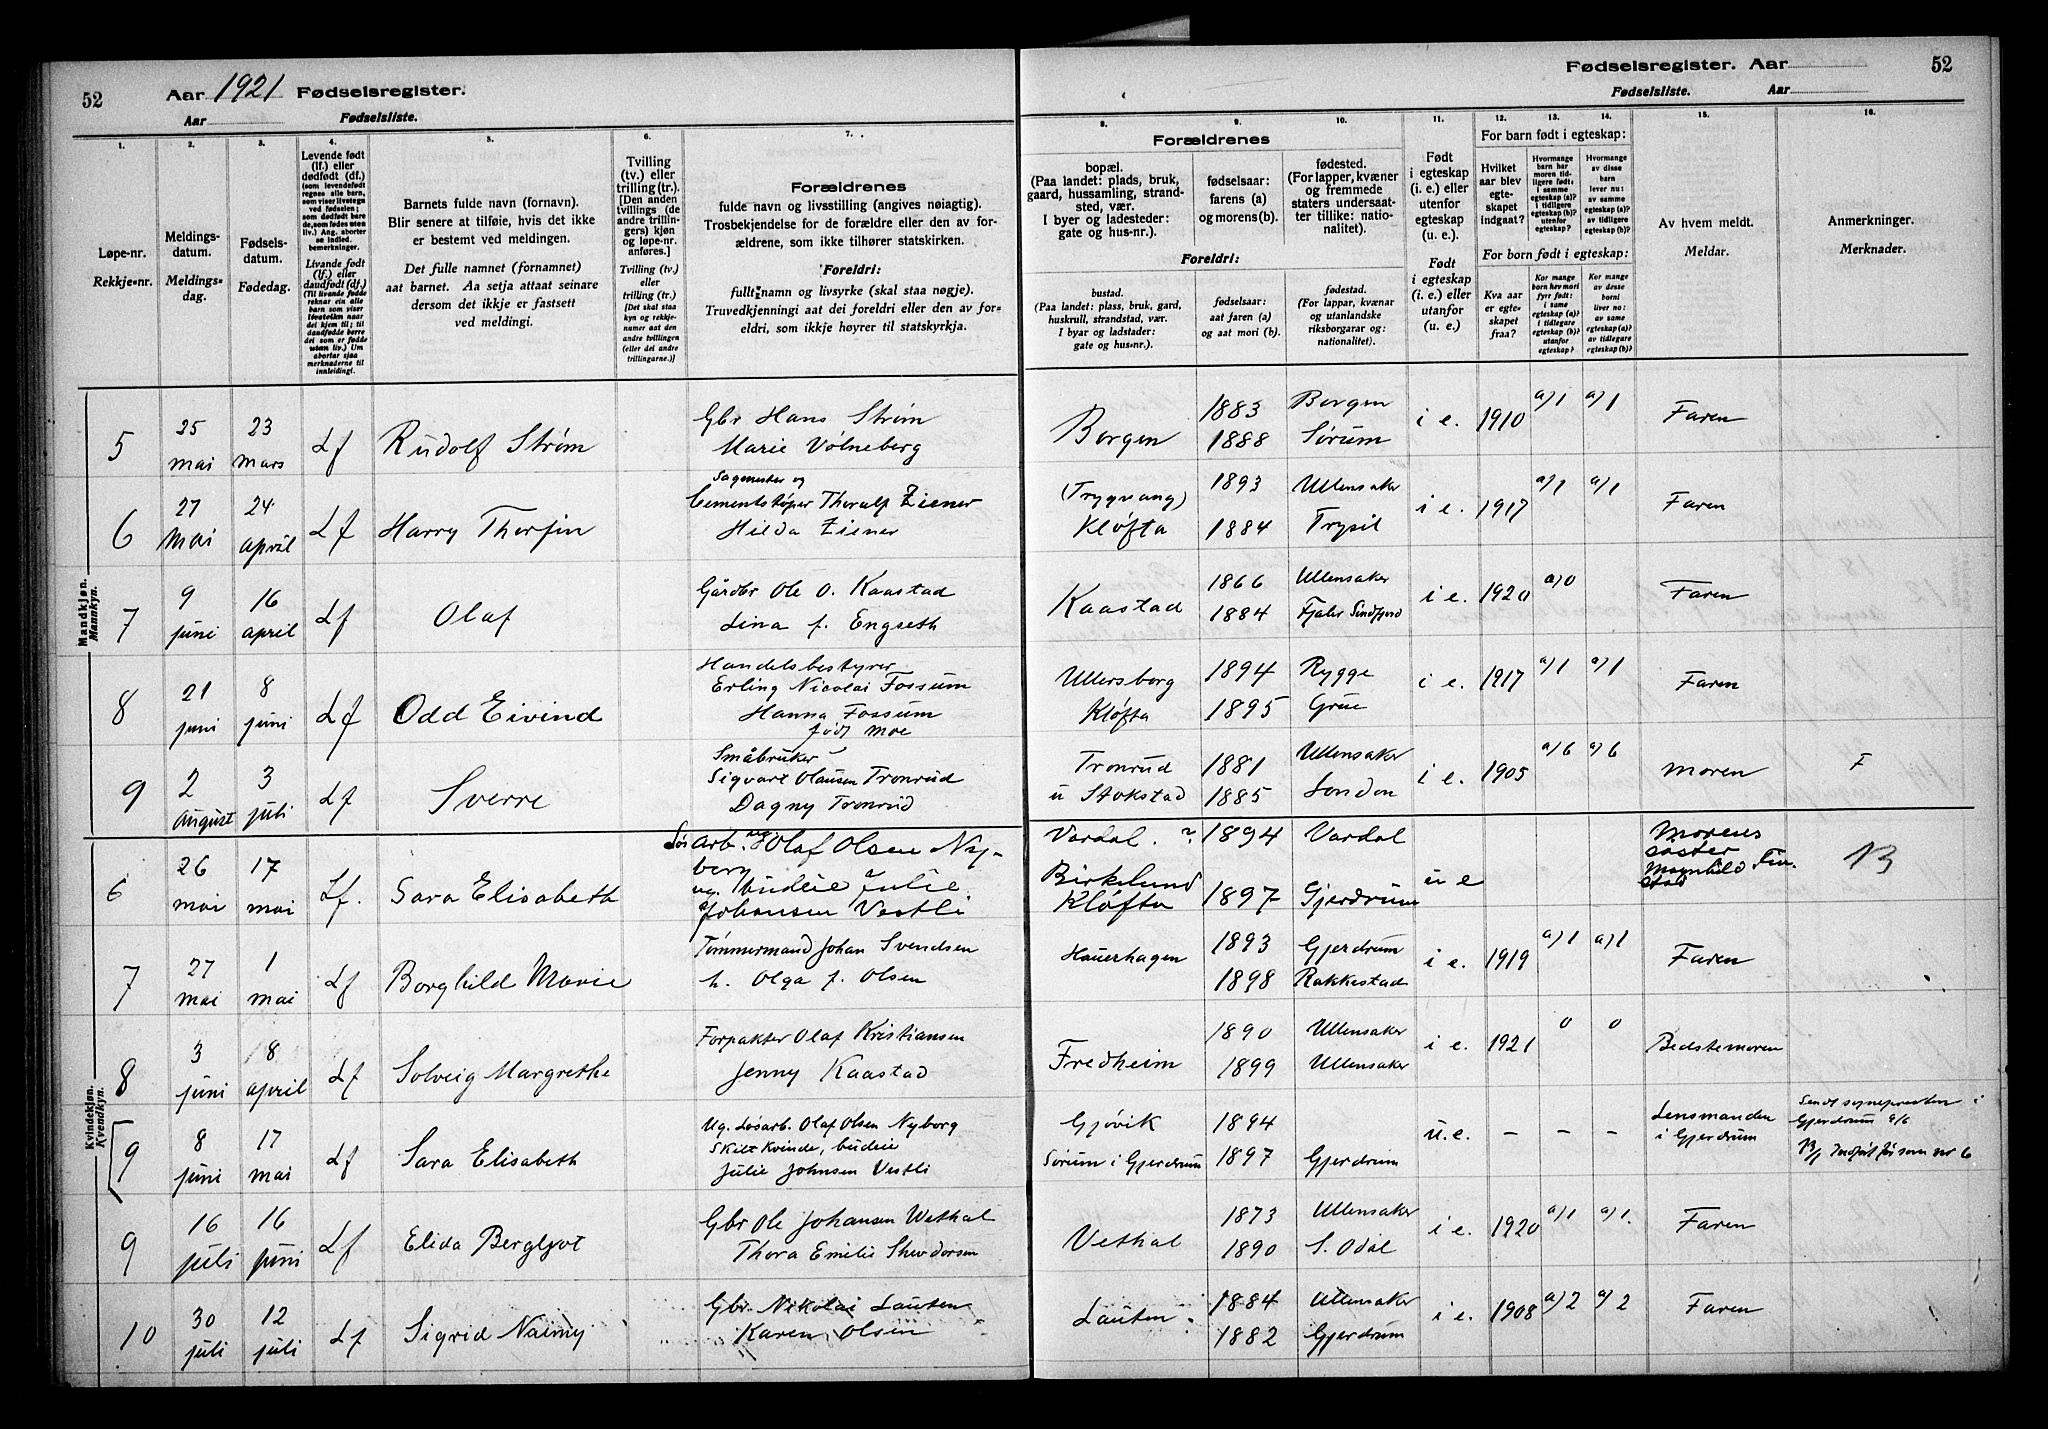 52
Aar 1921 Fødselsregister.
Aar Fødselsliste.
Fødselsregister. Aar
Fødselsliste. Aar
52
1.
Løpe-nr.
Rekkje-nr.
2.
Meldings-
datum.
Meldings-
dag.
3.
Fødsels-
datum.
Fødedag.
4.
Levende født
(lf.) eller
dødfødt (df.)
(som levendefødt
regnes alle barn,
som viser livstegn
ved fødselen;
som dødfødt bare
de, som fødes uten
liv.) Ang. aborter
se indled.
bemerkninger.
Livande født
(lf.) eller
daudfødt (df.)
(Til livande fødde
reknar ein alle
barn som viser
livsteikn naar
dei kjem til; til
daudfødde berre
dei som er fødde
utan liv.) Um
abortar sjaa
merknaderne til
innleiding!.
5.
Barnets fulde navn (fornavn).
Blir senere at tilføie, hvis det ikke
er bestemt ved meldingen.
Det fulle namnet (fornamnet)
aat barnet. Aa setja attaat seinare
dersom det ikkje er fastsett
ved meldingi.
6.
Tvilling
(tv.) eller
trilling (tr.).
[Den anden
tvillings (de
andre trillin-
gers) kjøn
og løpe-nr.
anføres.]
Tvilling (tv.)
eller
trilling (tr.)
[Det skal staa
kyn og rekkje-
numer aat den
andre tvillingen
(eller dei andre
trillingarne.)]
7.
Forældrenes
fulde navn og livsstilling (angives nøiagtig).
Trosbekjendelse for de forældre eller den av for-
ældrene, som ikke tilhører statskirken.
Foreldri:
fullt namn og livsyrke (skal staa nøgje).
Truvedkjenningi aat dei foreldri eller den av for-
eldri, som ikkje høyrer til statskyrkja.
8.
Forældrenes
bopæl.
(Paa landet: plads, bruk,
gaard, hussamling, strand-
sted, vær.
I byer og ladesteder:
gate og hus-nr.).
Foreldri:
bustad.
(Paa landet: plass, bruk, gard,
huskrull, strandstad, vær.
I byar og ladstader:
gate og hus-nr.).
9.
fødselsaar:
farens (a)
og morens (b).
fødselsaar:
aat faren (a)
og aat mori (b).
10.
fødested.
(For lapper, kvæner
og fremmede
staters undersaat-
ter tillike: natio-
nalitet).
fødestad.
(For lappar, kvænar
og utanlandske
riksborgarar og:
nationalitet).
11.
Født
i egteskap
(i. e.) eller
utenfor
egteskap
(u. e.).
Født
i egteskap
(i. e.) eller
utanfor
(u. e.).
12.
For barn født i egteskap:
Hvilket
aar blev
egte-
skapet
indgaat?
For barn født i egteskap:
Kva aar
er egte-
skapet
fraa?
13.
Hvormange
barn har
moren tid-
ligere født:
i samme
egteskap (a)?
i tidligere
egteskap (b)?
utenfor
egteskap?
Kor mange
born hev mori
fyrr født:
i same
egteskap (a)?
i tidlegare
egteskap (b)?
utanfor
egteskap?
14.
Hvormange
av disse
barn
lever nu:
av samme
egteskap (a)?
av tidligere
egteskap (b)?
Kor mange
av desse
borni
liver no:
av same
egteskap (a)?
av tidlegare
egteskap (b)?
15.
Av hvem meldt.
Meldar.
16.
Anmerkninger.
Merknader.
Mandkjøn.
Mannkyn.
5 25 mai 23 mars Lf Rudolf Strøm Gbr Hans Strøm
Marie Volneberg Borgen 1883 Borgen
1888 Sørum i e. 1910 a/1 a/1 Faren
6 27 Mai 24 april Lf Harry Thorfin Sagmester og
Cementstøper Thoralf Ziener
Hilda Ziener (Trygvang)
Kløfta 1893 Ullensaker
1884 Trysil i e. 1917 a/1 a/1 Faren
7 9 juni 16 april Lf Olaf Gårdbr Ole O. Kaastad
Lina f. Engseth Kaastad 1866 Ullensaker
1884 Fjaler Sindfjord i e. 1920 a/0 Faren
8 21 juni 8 juni Lf Odd Eivind Handelsbestyrer
Erling Nicolai Fossum
Hanna Fossum
født Moe Ullersborg
Kløfta 1894 Rygge
1895 Grue i e. 1917 a/1 a/1 Faren
9 2 August 3 juli Lf Sverre Småbruker
Sigvart Olausen Tronrud
Dagny Tronrud Tronrud
u Stokstad 1881 Ullensaker
1885 London i e. 1905 a/6 a/6 moren F
Kvindekjøn.
Kvendkyn.
6 26 mai 17 mai Lf. Sara Elisabeth Løsarb. ug Olaf Olsen Ny-
berg
ug. budeie Julie
Johansen Vestli Vardal. ?
Birkelund
Kløfta 1894 Vardal
1897 Gjerdrum u e Morens
søster
13
7 27 mai 1 mai Lf Borghild Marie Tømmermand Johan Svendsen
h. Olga f. Olsen Hauerhagen 1893 Gjerdrum
1898 Rakkestad i e. 1919 a/1 a/1 Faren
8 3 juni 8 april Lf Solveig Margrethe Forpakter Olaf Kristiansen
Jenny Kaastad Fredheim 1890 Ullensaker
1899 Ullensaker i e. 1921 0 0 Bedstemoren
9 8 juni 17 mai Lf Sara Elisabeth Ug. Løsarb. Olaf Olsen Nyborg
Skilt kvinde, budeie
Julie Johnsen Vestli Gjøvik
Sørum i Gjerdrum 1894
1897 Gjerdrum u. e. – – – Lensmanden
i Gjerdrum Sendt sognepresten i
Gjerdrum 9/6
Indført før som nr 6
9 16 juli 16 juni Lf Elida Bergljot Gbr Ole Johansen Wethal
Thora Emilie Theodorsen Vethal 1873 Ullensaker
1890 S. Odal i e. 1920 a/1 a/1. Faren
10 30 juli 12 juli Lf Sigrid Naimy Gbr Nikolai Lauten
Karen Olsen Lauten 1884 Ullensaker
1882 Gjerdrum i e. 1908 a/2 a/2 Faren